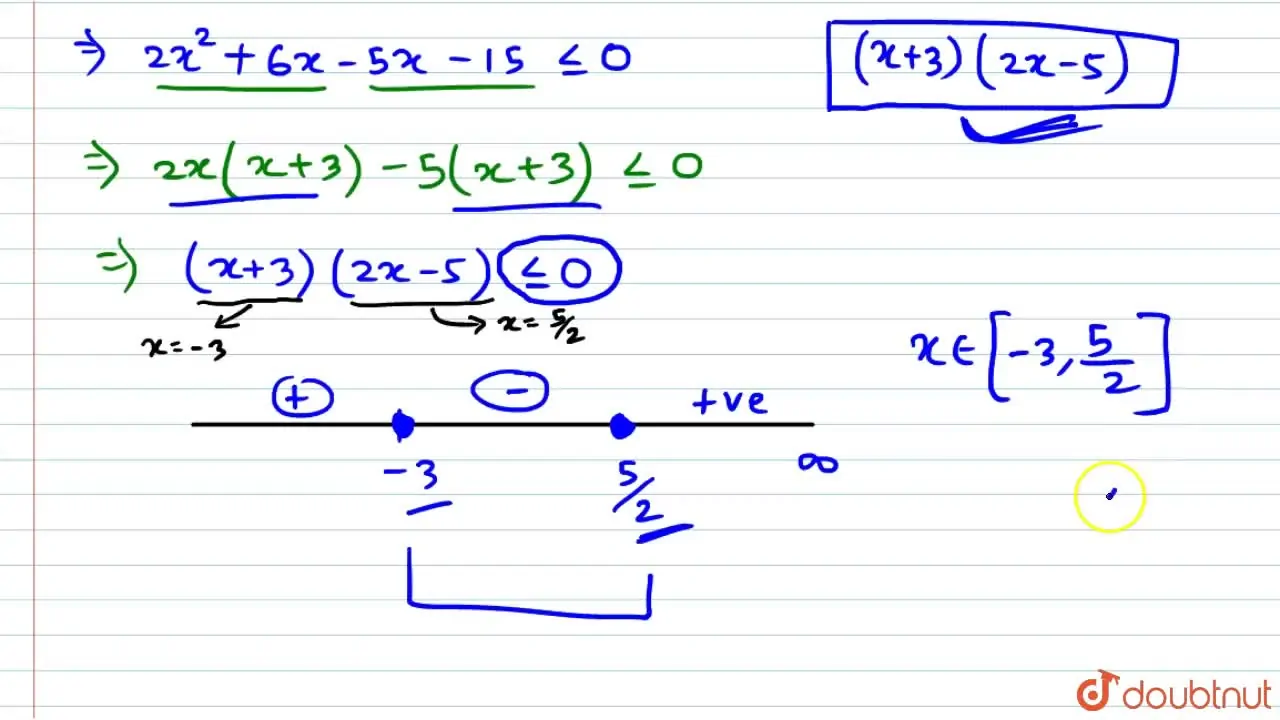 ⇒ 2x² + 6x - 5x - 15 ≤ 0
(x+3) (2x-5)
⇒ 2x(x+3) - 5(x+3) ≤ 0
⇒ (x+3) (2x-5) ≤ 0
x = -3
x = 5/2
x ∈ [-3, 5/2]
+
-
+ve
-3
5/2
∞
doubtnut